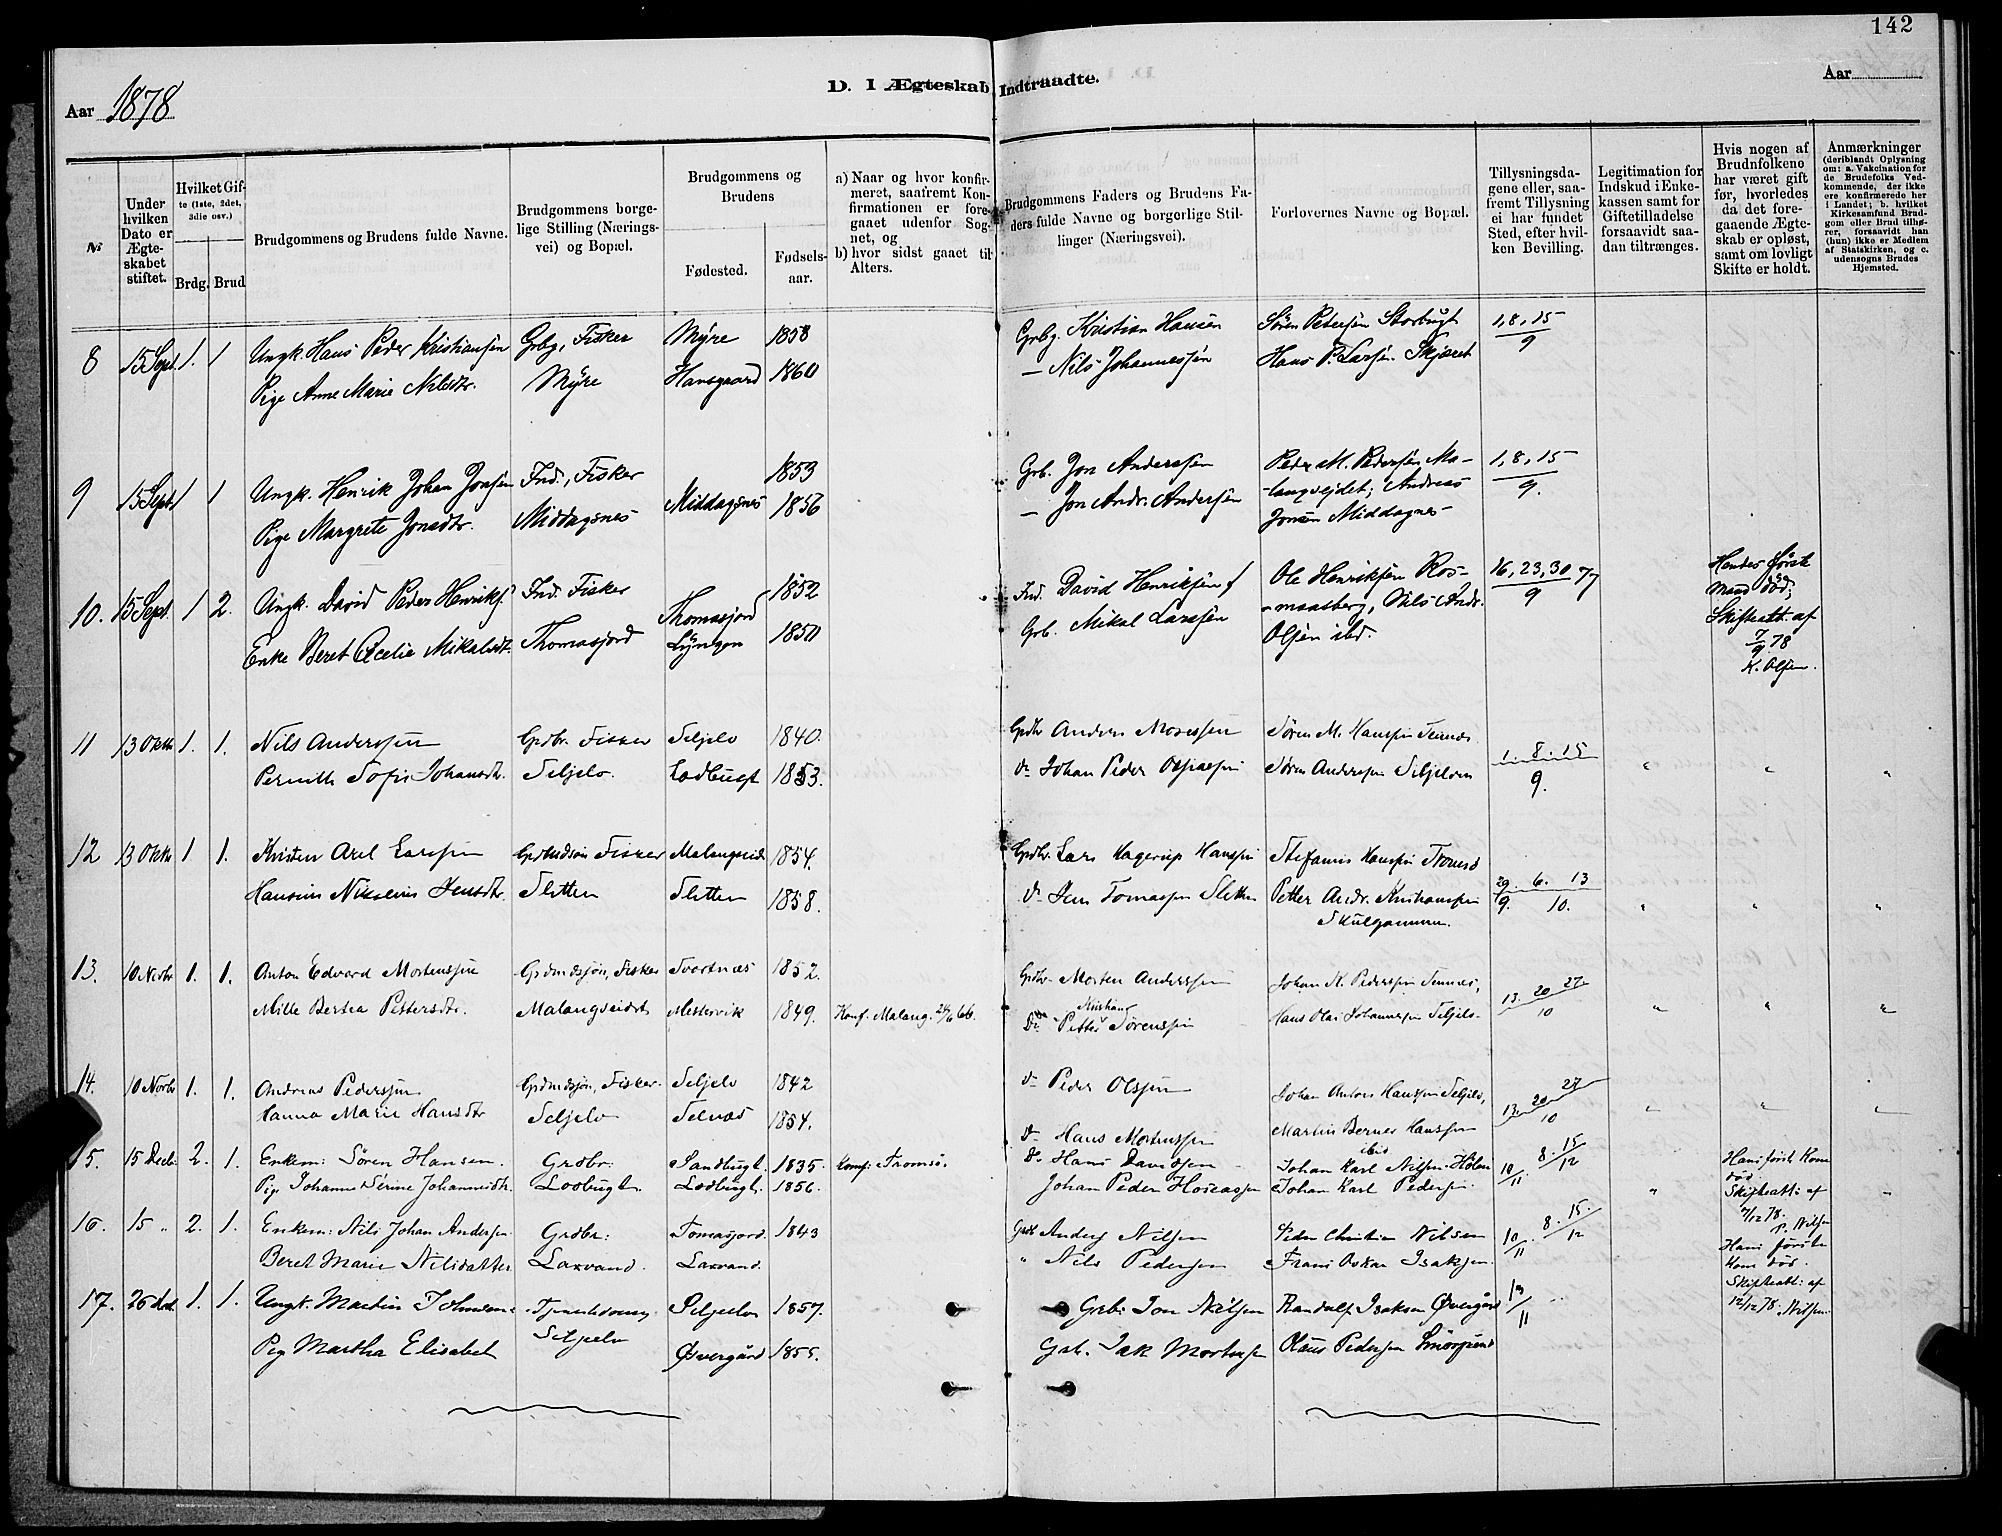 142
D. I Ægteskab Indtraadte.
Aar 1878
Aar
No
Under hvilken Dato er Ægteskabet stiftet.
Hvilket Gifte (1ste, 2det, 3die osv.)
Brdg. Brud
Brudgommens og Brudens fulde Navne.
Brudgommens borgelige Stilling (Næringsvei) og Bopæl.
Brudgommens og Brudens
Fødested.
Fødselsaar.
a) Naar og hvor konfirmeret, saafremt Konfirmationen er foregaaet udenfor Sognet, og
b) hvor sidst gaaet til Alters.
Brudgommens Faders og Brudens Faders fulde Navne og borgerlige Stillinger (Næringsvei).
Forlovernes Navne og Bopæl.
Tillysningsdagene eller, saafremt Tillysning ei har fundet Sted, efter hvilken Bevilling.
Legitimation for Indskud i Enkekassen samt for Giftetilladelse forsaavidt saadan tiltrænges.
Hvis nogen af Brudnfolkene har været gift før, hvorledes da det foregaaende Ægteskab er opløst, samt om lovligt Skifte er holdt.
Anmærkninger (deriblandt Oplysning om: a. Vakcination for de Brudefolks Vedkommende, der ikke ere konfirmerede her i Landet; b. hvilket Kirkesamfund Brudgom eller Brud tilhører, forsaavidt han (hun) ikke er Medlem af Statskirken, og c. udensogns Brudes Hjemsted.
8 15 Sept. 1. 1 Ungk. Hans Peder Kristiansen Grbg, Fisker Myre 1858 Grbg. Kristian Hansen Sören Petersen Storbugt 1, 8, 15
Pige Anne Marie Nilsdtr. Myre Hansgaard 1860 — Nils Johannessen Hans P. Larsen Skjæret 9
9 15 Sept 1 1 Ungk. Henrik Johan Jonsen Ind., Fisker 1853 Grb. Jon Anderssen Peder M. Pedersen Ma- 1, 8, 15
Pige Margrete Jonsdtr. Middagsnes Middagsnes 1856 — Jon Andr. Andersen -langsejdet; Andreas 9.
Jonsen Middagnes-
10. 15 Sept. 1 2. Ungk. David Peder Henriks. Ind. Fisker Thomasjord 1852 Ind. David Henriksen Ole Henriksen Ros- 16, 23, 30 77 Hendes første
Enke Beret Cecelie Mikalsdt. Thomasjord Lyngen 1850 Grb. Mikal Larssen -maasberg, Nils Andr. 9 Mand død;
Olsen ibd. Skifteatt. af
7/9 78
K. Olsen.
11 13 Oktb 1. 1. Nils Anderssen Grdbr. Fisker Seljelv 1840. Grdbr Anders Mosessen Søren M. Hanssen 1. 8. 15
Pernille Sofie Johansdtr. Seljelv. Lodbugt 1853. do Johan Peder Søren Anderssen Seljelven 9. " " "
12 13 Oktb 1 1. Kristen Axel Larssen Grdmdsøn Fisker Malangseid 1854. Grdbr. Lars Hagerup Hanssen Stefanus Hanssen Tromsø
Hansine Nikoline Jensdtr. Sletten Sletten 1858. do Jens Tomassen Sletten Petter Andr. Kristianssen 29. 6. 13
Skulgammen. 9. 10. " " "
13. 10 Novbr 1. 1. Anton Edvard Mortenssen Grdmdssøn, Fisker Svartnæs 1852. Grdbr. Morten Anderssen Johan N. Pederssen 13. 20 27.
Mille Bertea Pettersdtr. Malangseidet Mestervik 1849. Konf. Malang. 24/6 66. Do Petter Kristian Sørenssen Hans Olai Johannessen Seljelv. 10 " " "
14. 10 Novbr 1. 1. Andreas Pederssen Grdmdssøn, Fisker. Seljelv 1842 do Peder Olssen Johan Anton Hanssen Seljelv, 13. 20 27
Hanna Marie Hansdtr Seljelv Selnæs 1854. do Hans Mortenssen Martin Berner Hanssen ibid 10 " " "
15. 15 Decb. 2. 1. Enkem: Sören Hansen. Grdbr: Sandbugt. 1835. Konf: Tromsö. do Hans Davidsen Johan Karl Nilsen 10/11 8. 15/12 Hans först Kone
Pig Johanne Serine Johannesdtr. Lodbugt. Lodbugt. 1856. Johan Peder Hoseassen Johan Karl Pedersen. " död.
Skifteatt: af
7/12 78. P. Nilsen
16. 15 " 2. 1. Enkem: Nils Johan Andersen Grdbr: Tomasjord. 1843 Grdb Anders Nilsen Peder Christian Nilsen 10/11 8. 15./12 Hans förste
Beret Marie Nilsdatter Laxvand. Laxvand. " Nils Pedersen Frans Oskar Isaksen. Kone död.
Skifteatt: af
12/12 78. Nilsen.
17. 26 1. 1. Ungk. Martin Johnsen Seljelv 1857. Grdb: Jon Nilsen Randulf Isaksen Øvergård
Pig Martha Elisabet Seljelv Øvergård 1855. Isak Mortensen Claus Pedersen